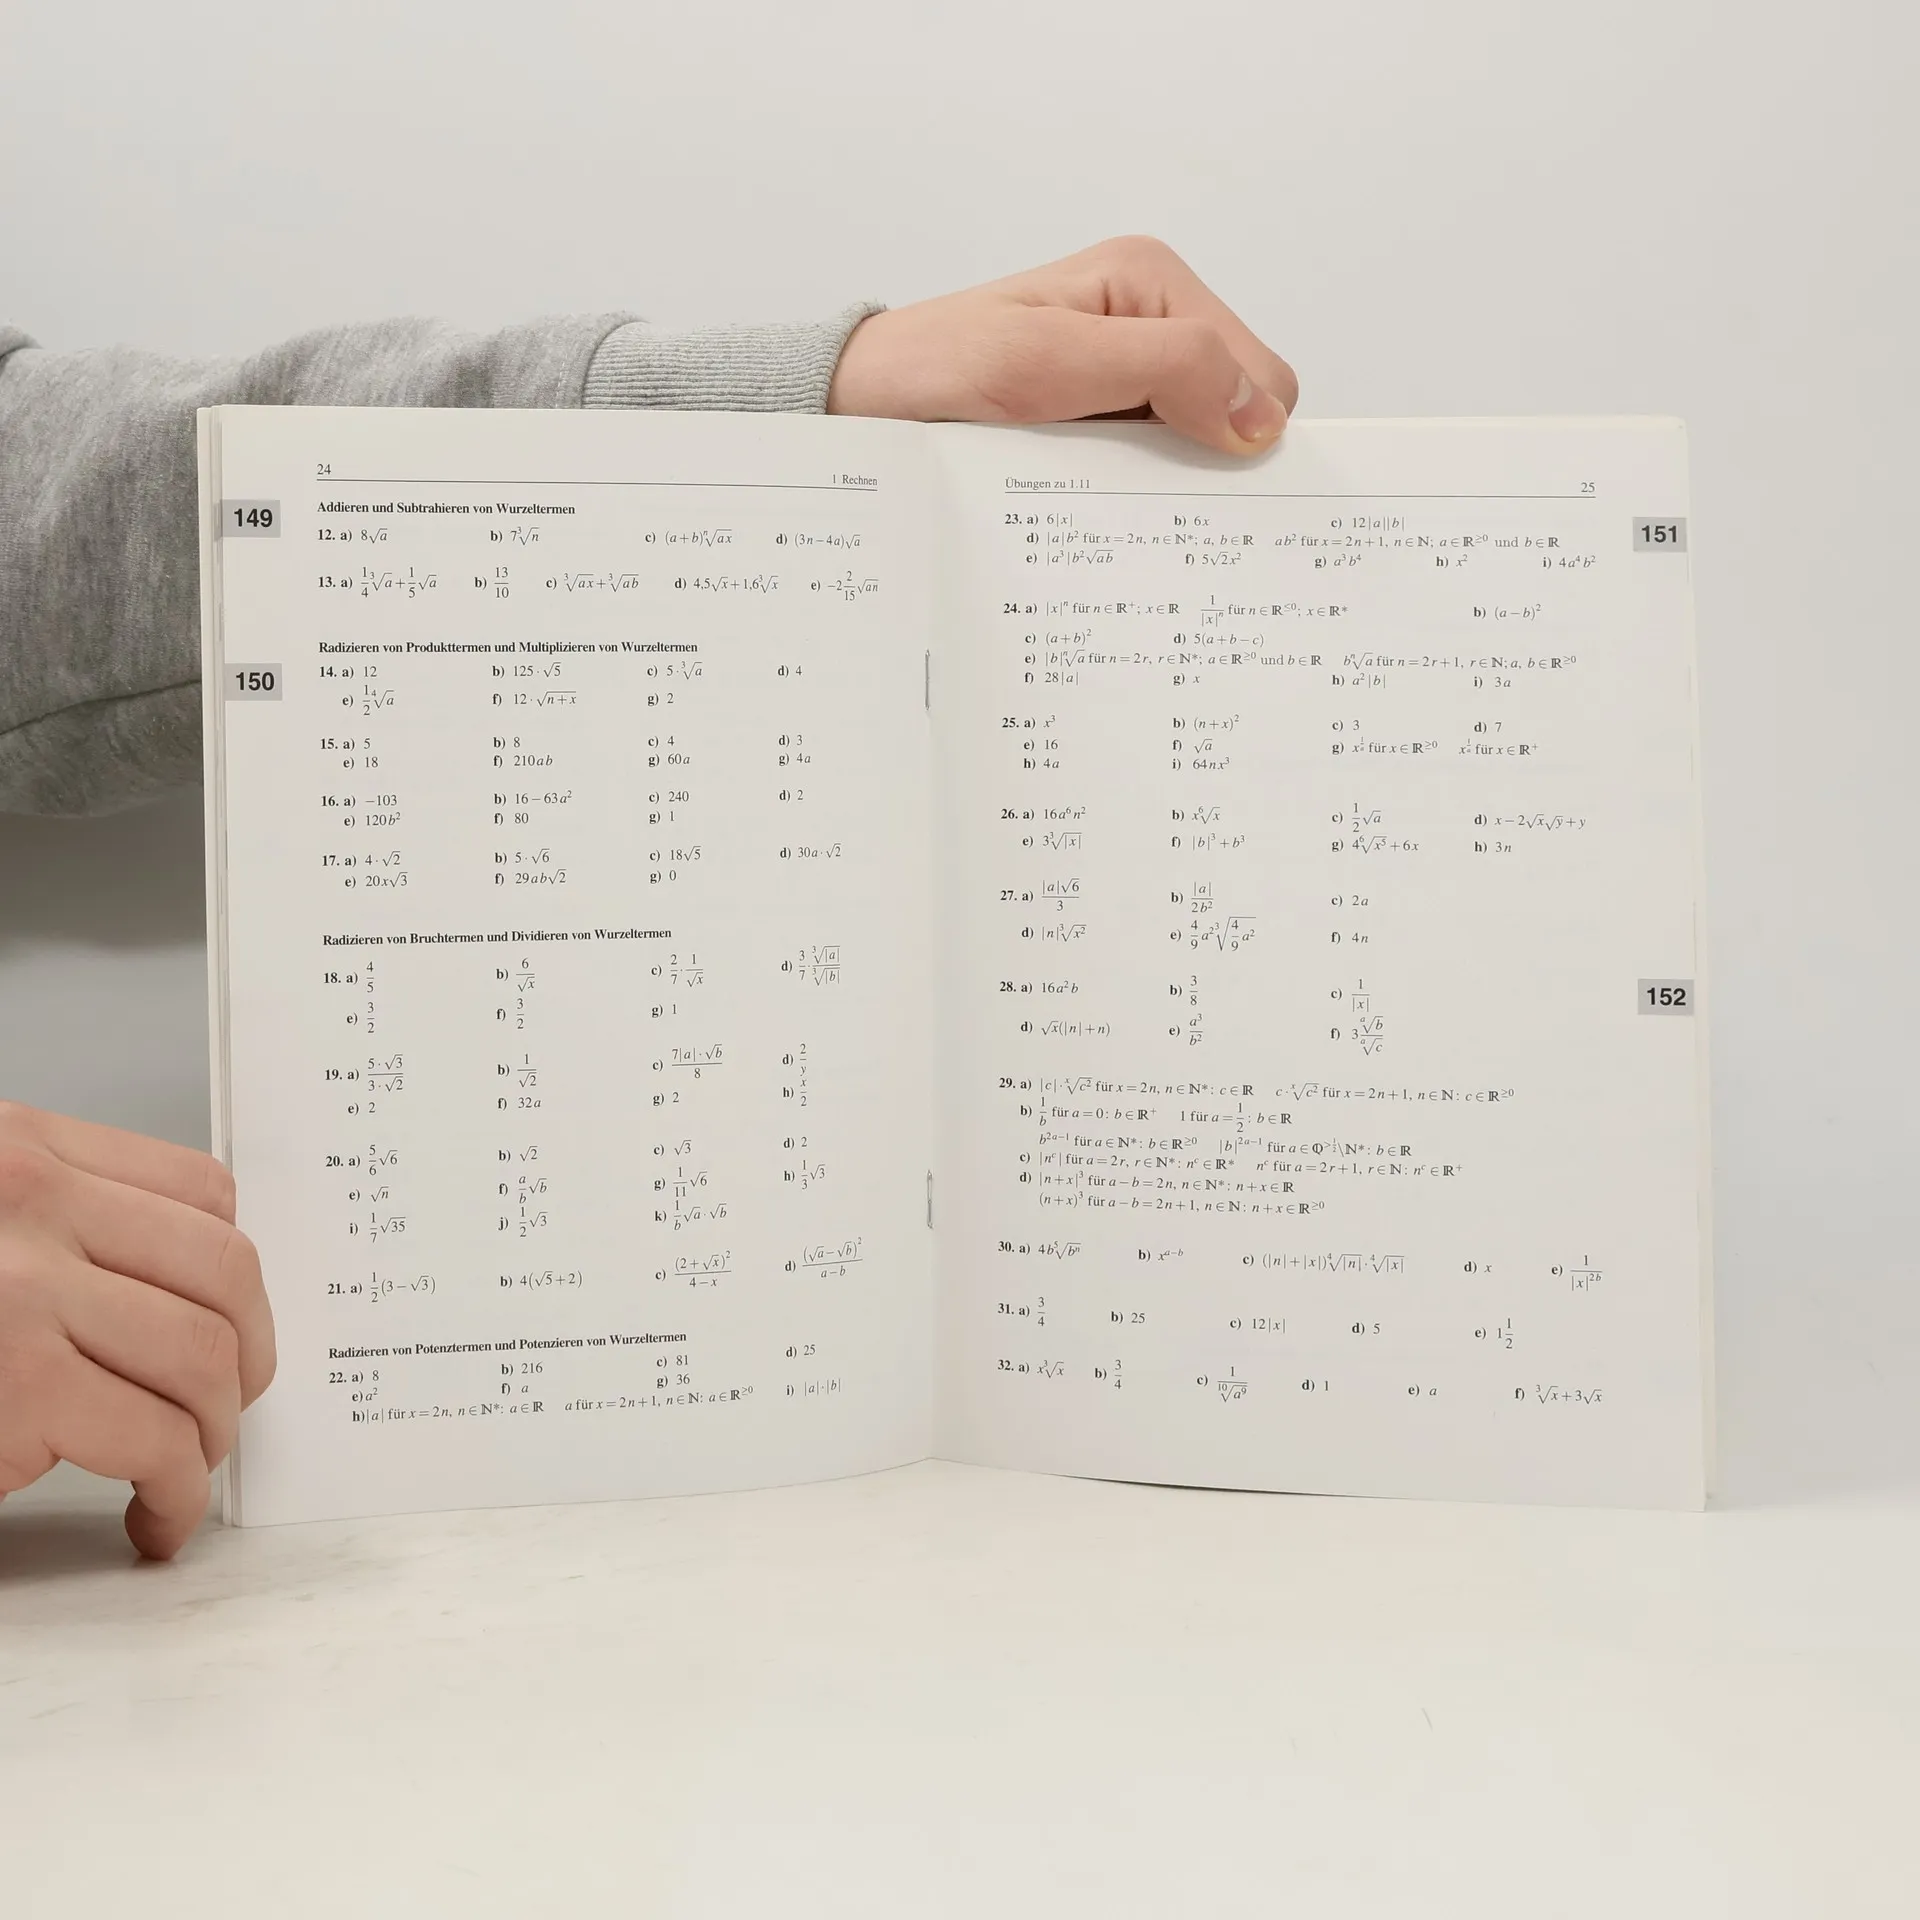 24
1 Rechnen
149
Addieren und Subtrahieren von Wurzeltermen
12. a) 8√a b) 7∛n c) (a+b)ⁿ√ax d) (3n−4a)√a
13. a) 1/4 ∛a + 1/5 √a b) 13/10 c) ∛ax + ∛ab d) 4,5√x + 1,6∛x e) −2 2/15 √an
Radizieren von Produkttermen und Multiplizieren von Wurzeltermen
150
14. a) 12 b) 125·√5 c) 5·∛a d) 4
e) 1/2 ∜a f) 12·√(n+x) g) 2
15. a) 5 b) 8 c) 4 d) 3
e) 18 f) 210ab g) 60a g) 4a
16. a) −103 b) 16−63a² c) 240 d) 2
e) 120b² f) 80 g) 1
17. a) 4·√2 b) 5·√6 c) 18√5 d) 30a·√2
e) 20x√3 f) 29ab√2 g) 0
Radizieren von Bruchtermen und Dividieren von Wurzeltermen
18. a) 4/5 b) 6/√x c) 2/7 · 1/√x d) 3/7 · ∛|a|/∛|b|
e) 3/2 f) 3/2 g) 1
19. a) 5·√3/3·√2 b) 1/√2 c) 7|a|·√b/8 d) 2/y
e) 2 f) 32a g) 2 h) x/2
20. a) 5/6 √6 b) √2 c) √3 d) 2
e) √n f) a/b √b g) 1/11 √6 h) 1/3 √3
i) 1/7 √35 j) 1/2 √3 k) 1/b √a·√b
21. a) 1/2 (3−√3) b) 4(√5+2) c) (2+√x)²/4−x d) (√a−√b)²/a−b
Radizieren von Potenztermen und Potenzieren von Wurzeltermen
22. a) 8 b) 216 c) 81 d) 25
e) a² f) a g) 36
h) |a| für x=2n, n∈ℕ*: a∈ℝ a für x=2n+1, n∈ℕ: a∈ℝ≥0 i) |a|·|b|
Übungen zu 1.11
25
151
23. a) 6|x| b) 6x c) 12|a||b|
d) |a|b² für x=2n, n∈ℕ*; a, b∈ℝ ab² für x=2n+1, n∈ℕ; a∈ℝ≥0 und b∈ℝ
e) |a³|b²√ab f) 5√2x² g) a³b⁴ h) x² i) 4a⁴b²
24. a) |x|ⁿ für n∈ℝ⁺; x∈ℝ 1/|x|ⁿ für n∈ℝ≤0; x∈ℝ* b) (a−b)²
c) (a+b)² d) 5(a+b−c)
e) |b|ⁿ√a für n=2r, r∈ℕ*; a∈ℝ≥0 und b∈ℝ bⁿ√a für n=2r+1, r∈ℕ; a, b∈ℝ≥0
f) 28|a| g) x h) a²|b| i) 3a
25. a) x³ b) (n+x)² c) 3 d) 7
e) 16 f) √a g) für x∈ℝ≥0 für x∈ℝ⁺
h) 4a i) 64nx³
26. a) 16a⁶n² b) x⁶√x c) 1/2 √a d) x−2√x√y+y
e) 3∛|x| f) |b|³+b³ g) 4⁶√x⁵+6x h) 3n
27. a) |a|√6/3 b) |a|/2b² c) 2a
d) |n|∛x² e) 4/9 a² ∛(4/9 a²) f) 4n
152
28. a) 16a²b b) 3/8 c) 1/|x|
d) √x(|n|+n) e) a³/b² f) 3 ᵃ√b/ᵃ√c
29. a) |c|·ˣ√c² für x=2n, n∈ℕ*: c∈ℝ c·ˣ√c² für x=2n+1, n∈ℕ: c∈ℝ≥0
b) 1/b für a=0: b∈ℝ⁺ 1 für a=1/2: b∈ℝ
b²ᵃ⁻¹ für a∈ℕ*: b∈ℝ≥0 |b|²ᵃ⁻¹ für a∈ℚ>1/2\ℕ*: b∈ℝ
c) |nᶜ| für a=2r, r∈ℕ*: nᶜ∈ℝ* nᶜ für a=2r+1, r∈ℕ: nᶜ∈ℝ⁺
d) |n+x|³ für a−b=2n, n∈ℕ*: n+x∈ℝ
(n+x)³ für a−b=2n+1, n∈ℕ: n+x∈ℝ≥0
30. a) 4b⁵√bⁿ b) xᵃ⁻ᵇ c) (|n|+|x|)∜|n|·∜|x| d) x e) 1/|x|²ᵇ
31. a) 3/4 b) 25 c) 12|x| d) 5 e) 1 1/2
32. a) x∛x b) 3/4 c) 1/¹⁰√a⁹ d) 1 e) a f) ∛x+3√x